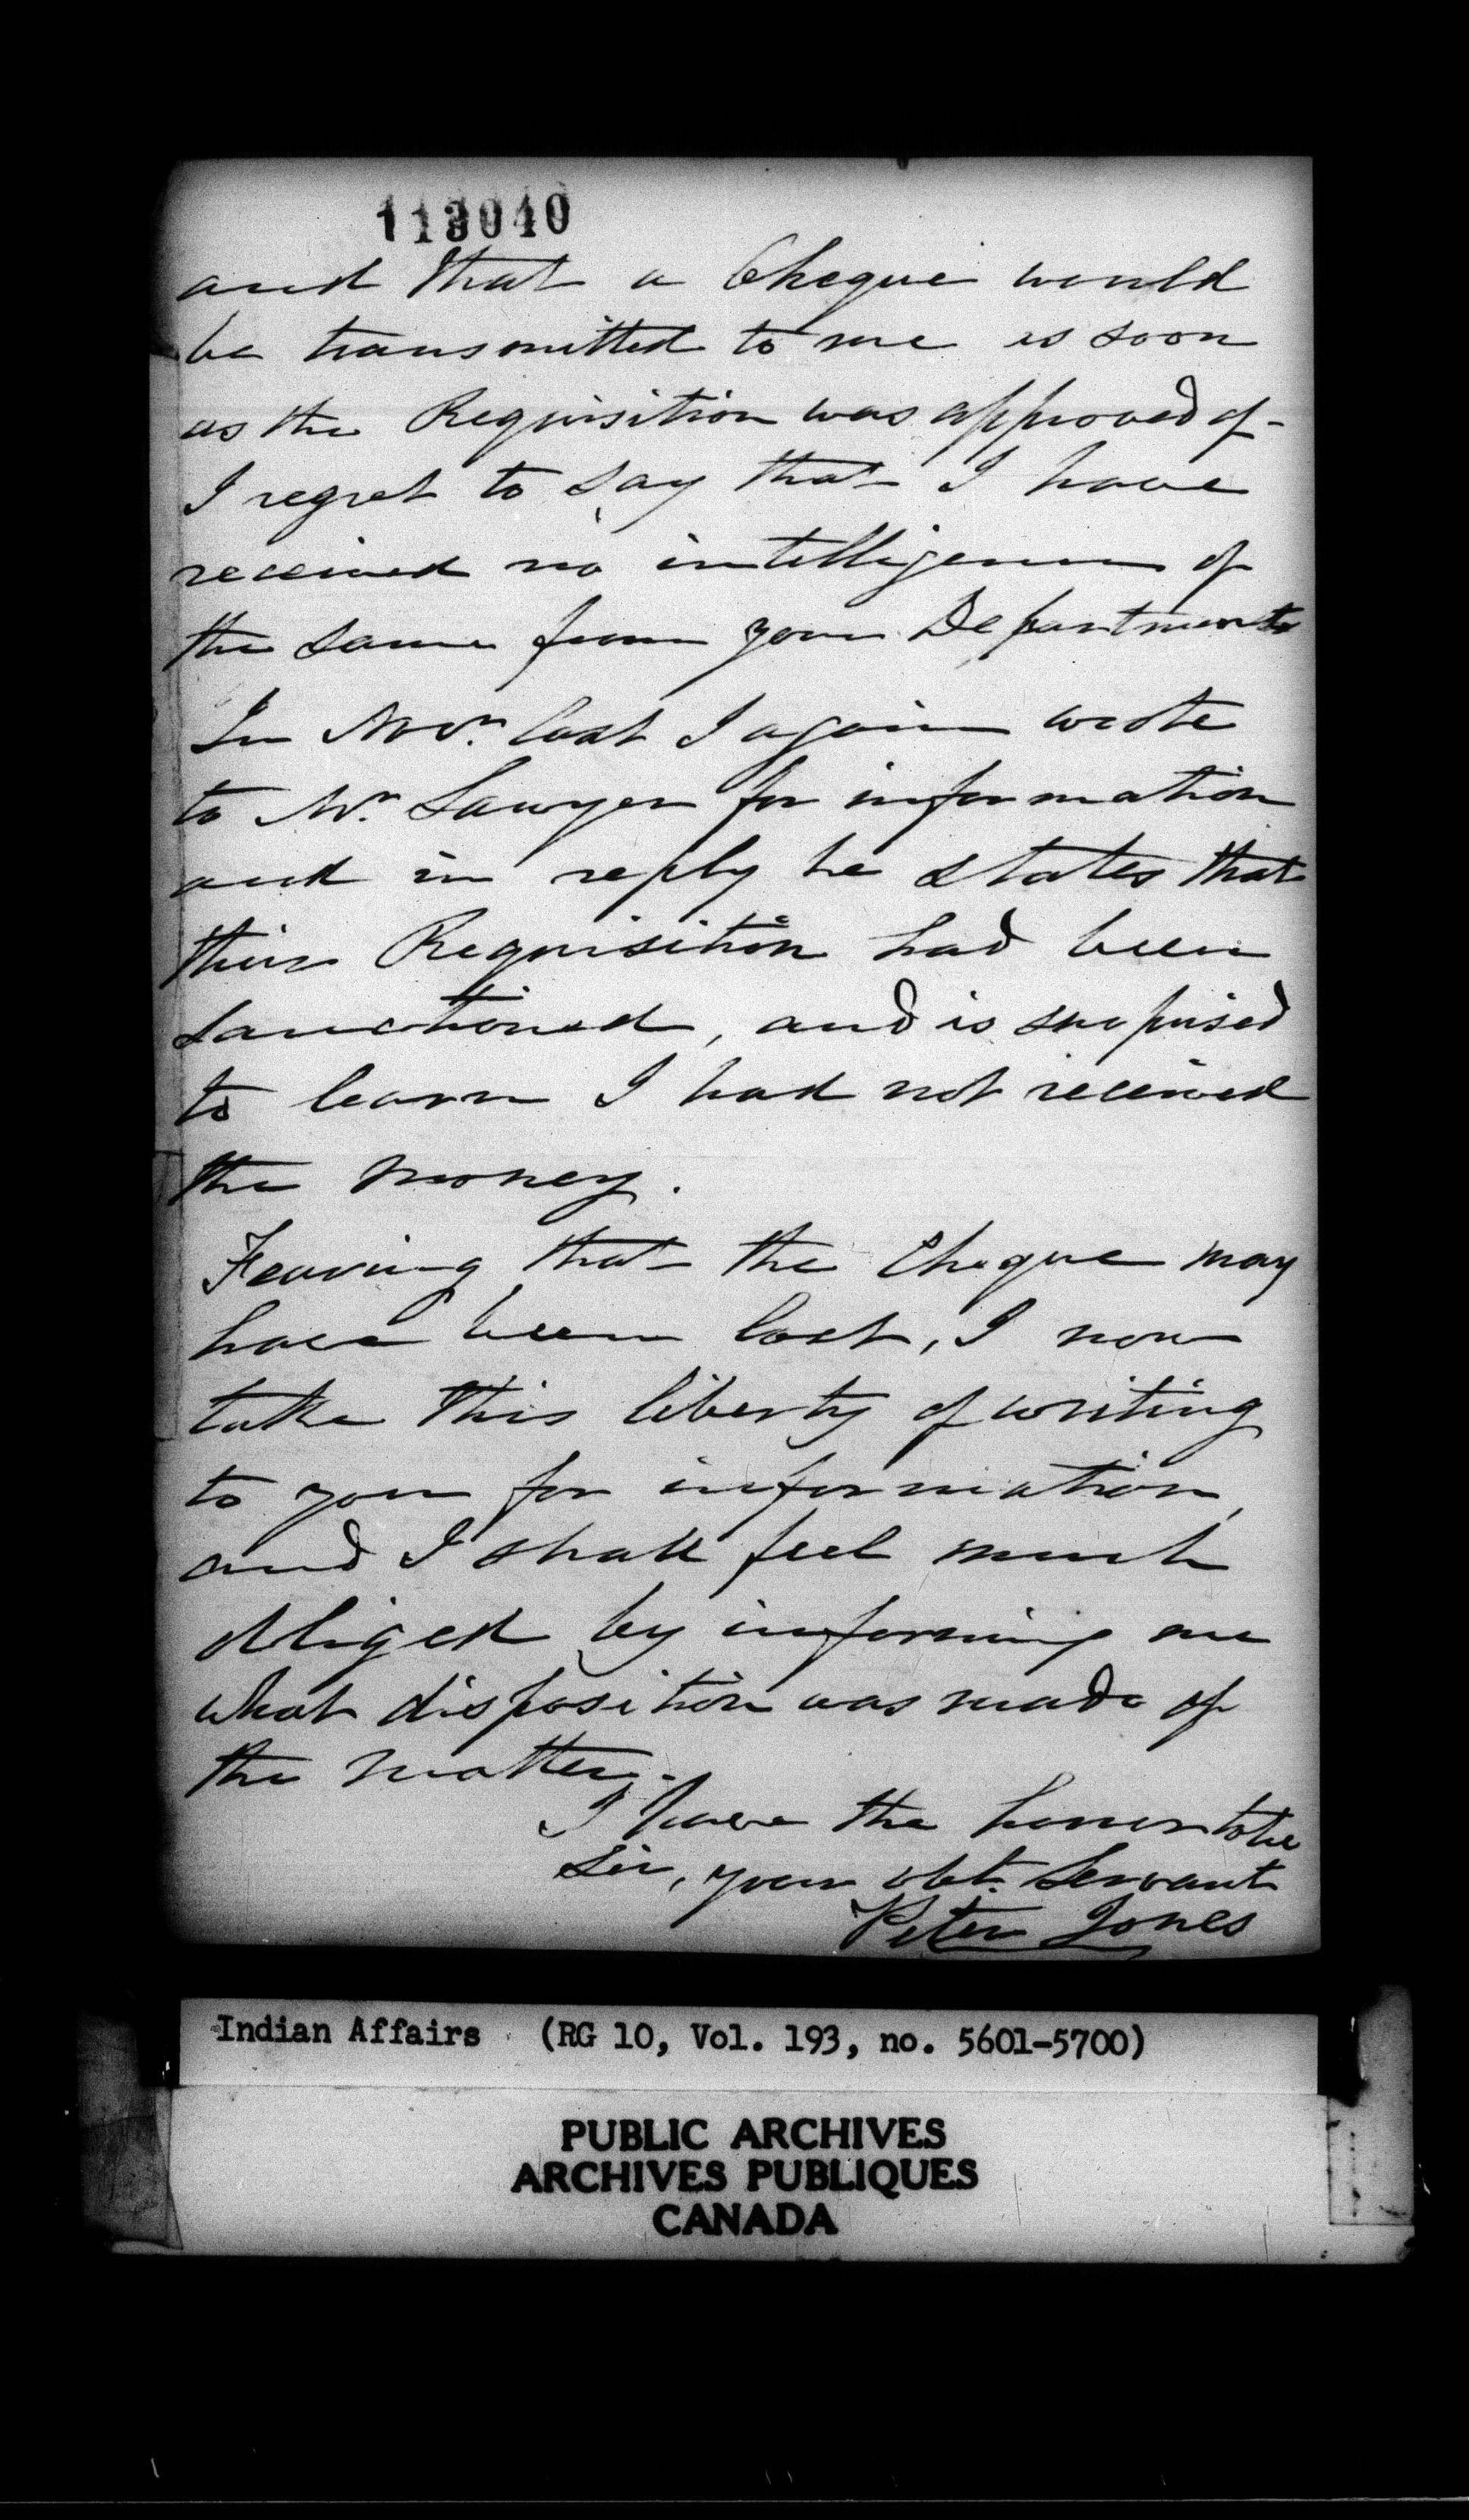 113040
and that a Cheque would
be transmitted to me as soon
as the Requisition was approved of -
I regret to say that I have
received no intelligence of
the same from your Department
In Novr. last I again wrote
to Mr. Sawyer for information
and in reply he states that
their Requisition had been
sanctioned, and is surprised
to learn I had not received
the money.
Fearing that the Cheque may
have been lost, I now
take this liberty of writing
to you for information,
and I shall feel much
obliged by informing me
what disposition was made of
the matter.
I have the honor to be
Sir, your obt. Servant
Peter Jones
Indian Affairs (RG 10, Vol. 193, no. 5601-5700)
PUBLIC ARCHIVES
ARCHIVES PUBLIQUES
CANADA